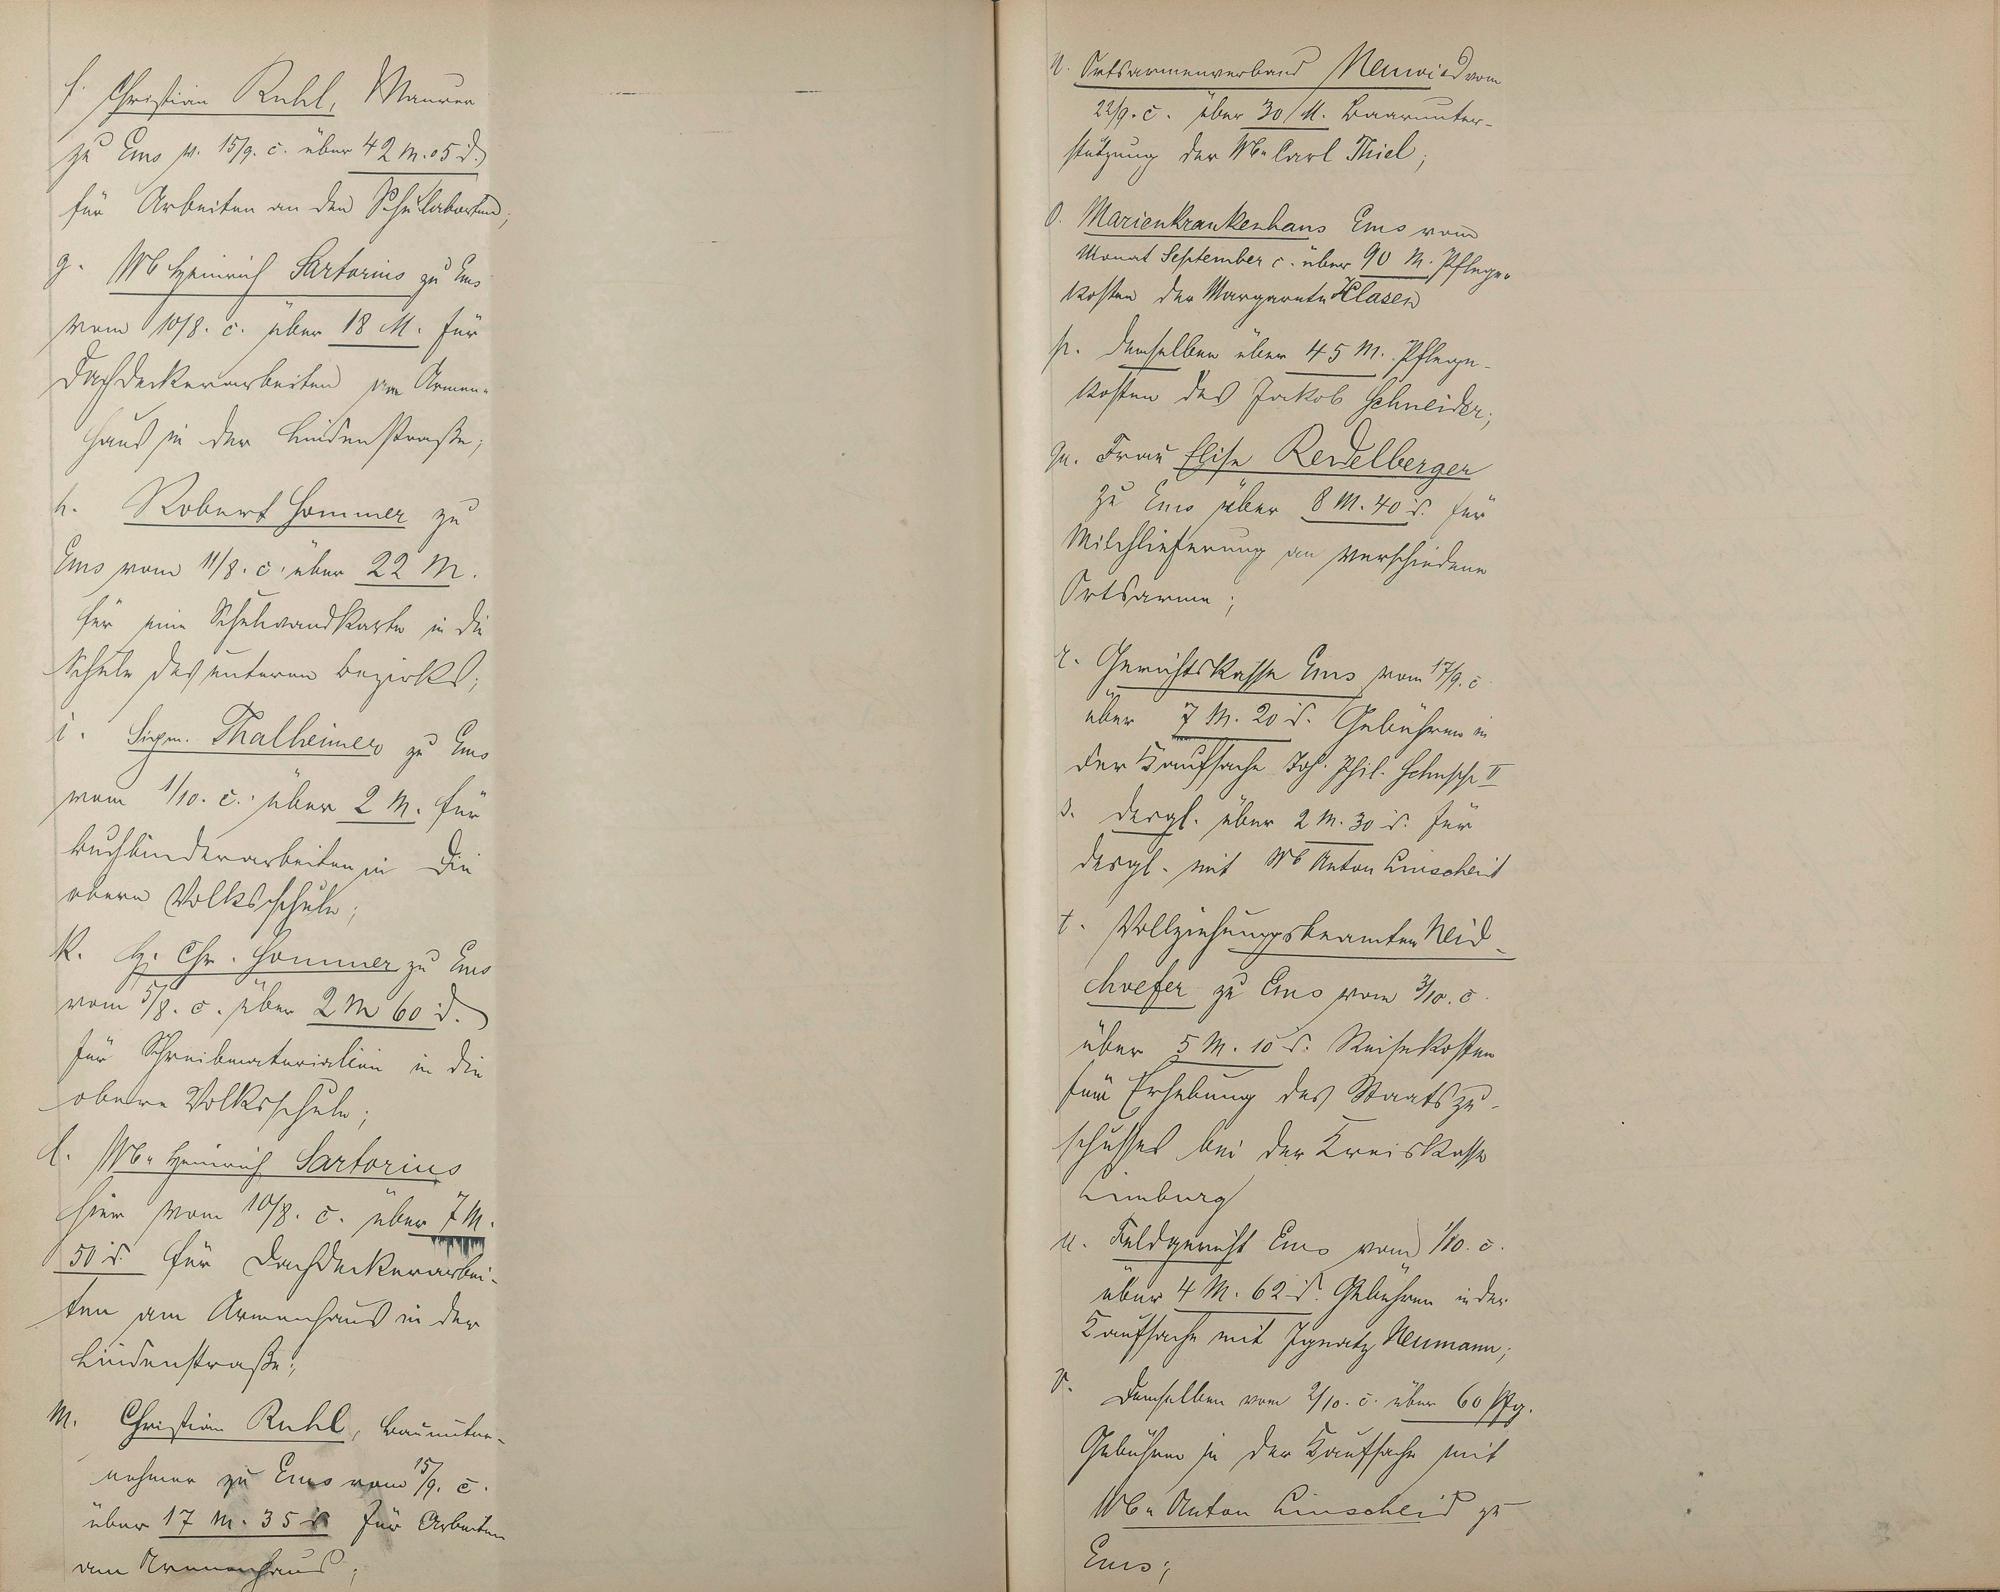 f. Christian Ruhl, Maurer
zu Ems v. 15/9. c. über 42 M. 05 d.
für Arbeiten an den Schulaborten;
g. Wb Heinrich Sartorius zu Ems
vom 10/8. c. über 18 M. für
Dachdeckerarbeiten am Armen-
haus in der Lindenstraße;
h. Robert Hommer zu
Ems vom 11/8. c. über 22 M.
für eine Schulwandkarte in die
Schule des unteren Bezirks;
i. Sigm. Thalheimer zu Ems
vom 1/10. c. über 2 M. für
Buchbinderarbeiten in die
obere Volksschule;
k. H. Chr. Hommer zu Ems
vom 5/8. c. über 2 M 60 d.
für Schreibmaterialien in die
obere Volksschule;
l. Wb. Heinrich Sartorius
hier vom 10/8. c. über 7 M.
50 d. für Dachdeckerarbei-
ten am Armenhaus in der
Lindenstraße;
m. Christian Ruhl, Bauunter-
nehmer zu Ems vom 15/9. c.
über 17 M. 35 d. für Arbeiten
am Armenhaus;
n. Ortsarmenverband Neuwied vom
22/9. c. über 30 M. Baarunter-
stützung der Wb. Carl Thiel;
o. Marienkrankenhaus Ems vom
Monat September c. über 90 M. Pflege-
kosten der Margarete Klasen
p. demselben über 45 M. Pflege-
kosten des Jakob Schneider;
q. Frau Elise Reudelberger
zu Ems über 8 M. 40 d. für
Milchlieferung an verschiedene
Ortsarme;
r. Gerichtskasse Ems vom 17/9. c.
über 7 M. 20 d. Gebühren in
der Kaufsache Joh. Phil. II
s. desgl. über 2 M. 30 d. für
desgl. mit Wb Anton Linscheid
t. Vollziehungsbeamten Neid-
hoefer zu Ems vom 3/10. c.
über 5 M. 10 d. Reisekosten
für Erhebung des Staatszu-
schusses bei der Kreiskasse
Limburg
u. Feldgericht Ems vom 1/10. c.
über 4 M. 62 d. Gebühren in der
Kaufsache mit Ignatz Neumann;
v. Demselben vom 2/10. c. über 60 Pfg.
Gebühren in der Kaufsache mit
Wb. Anton Linscheid zu
Ems;